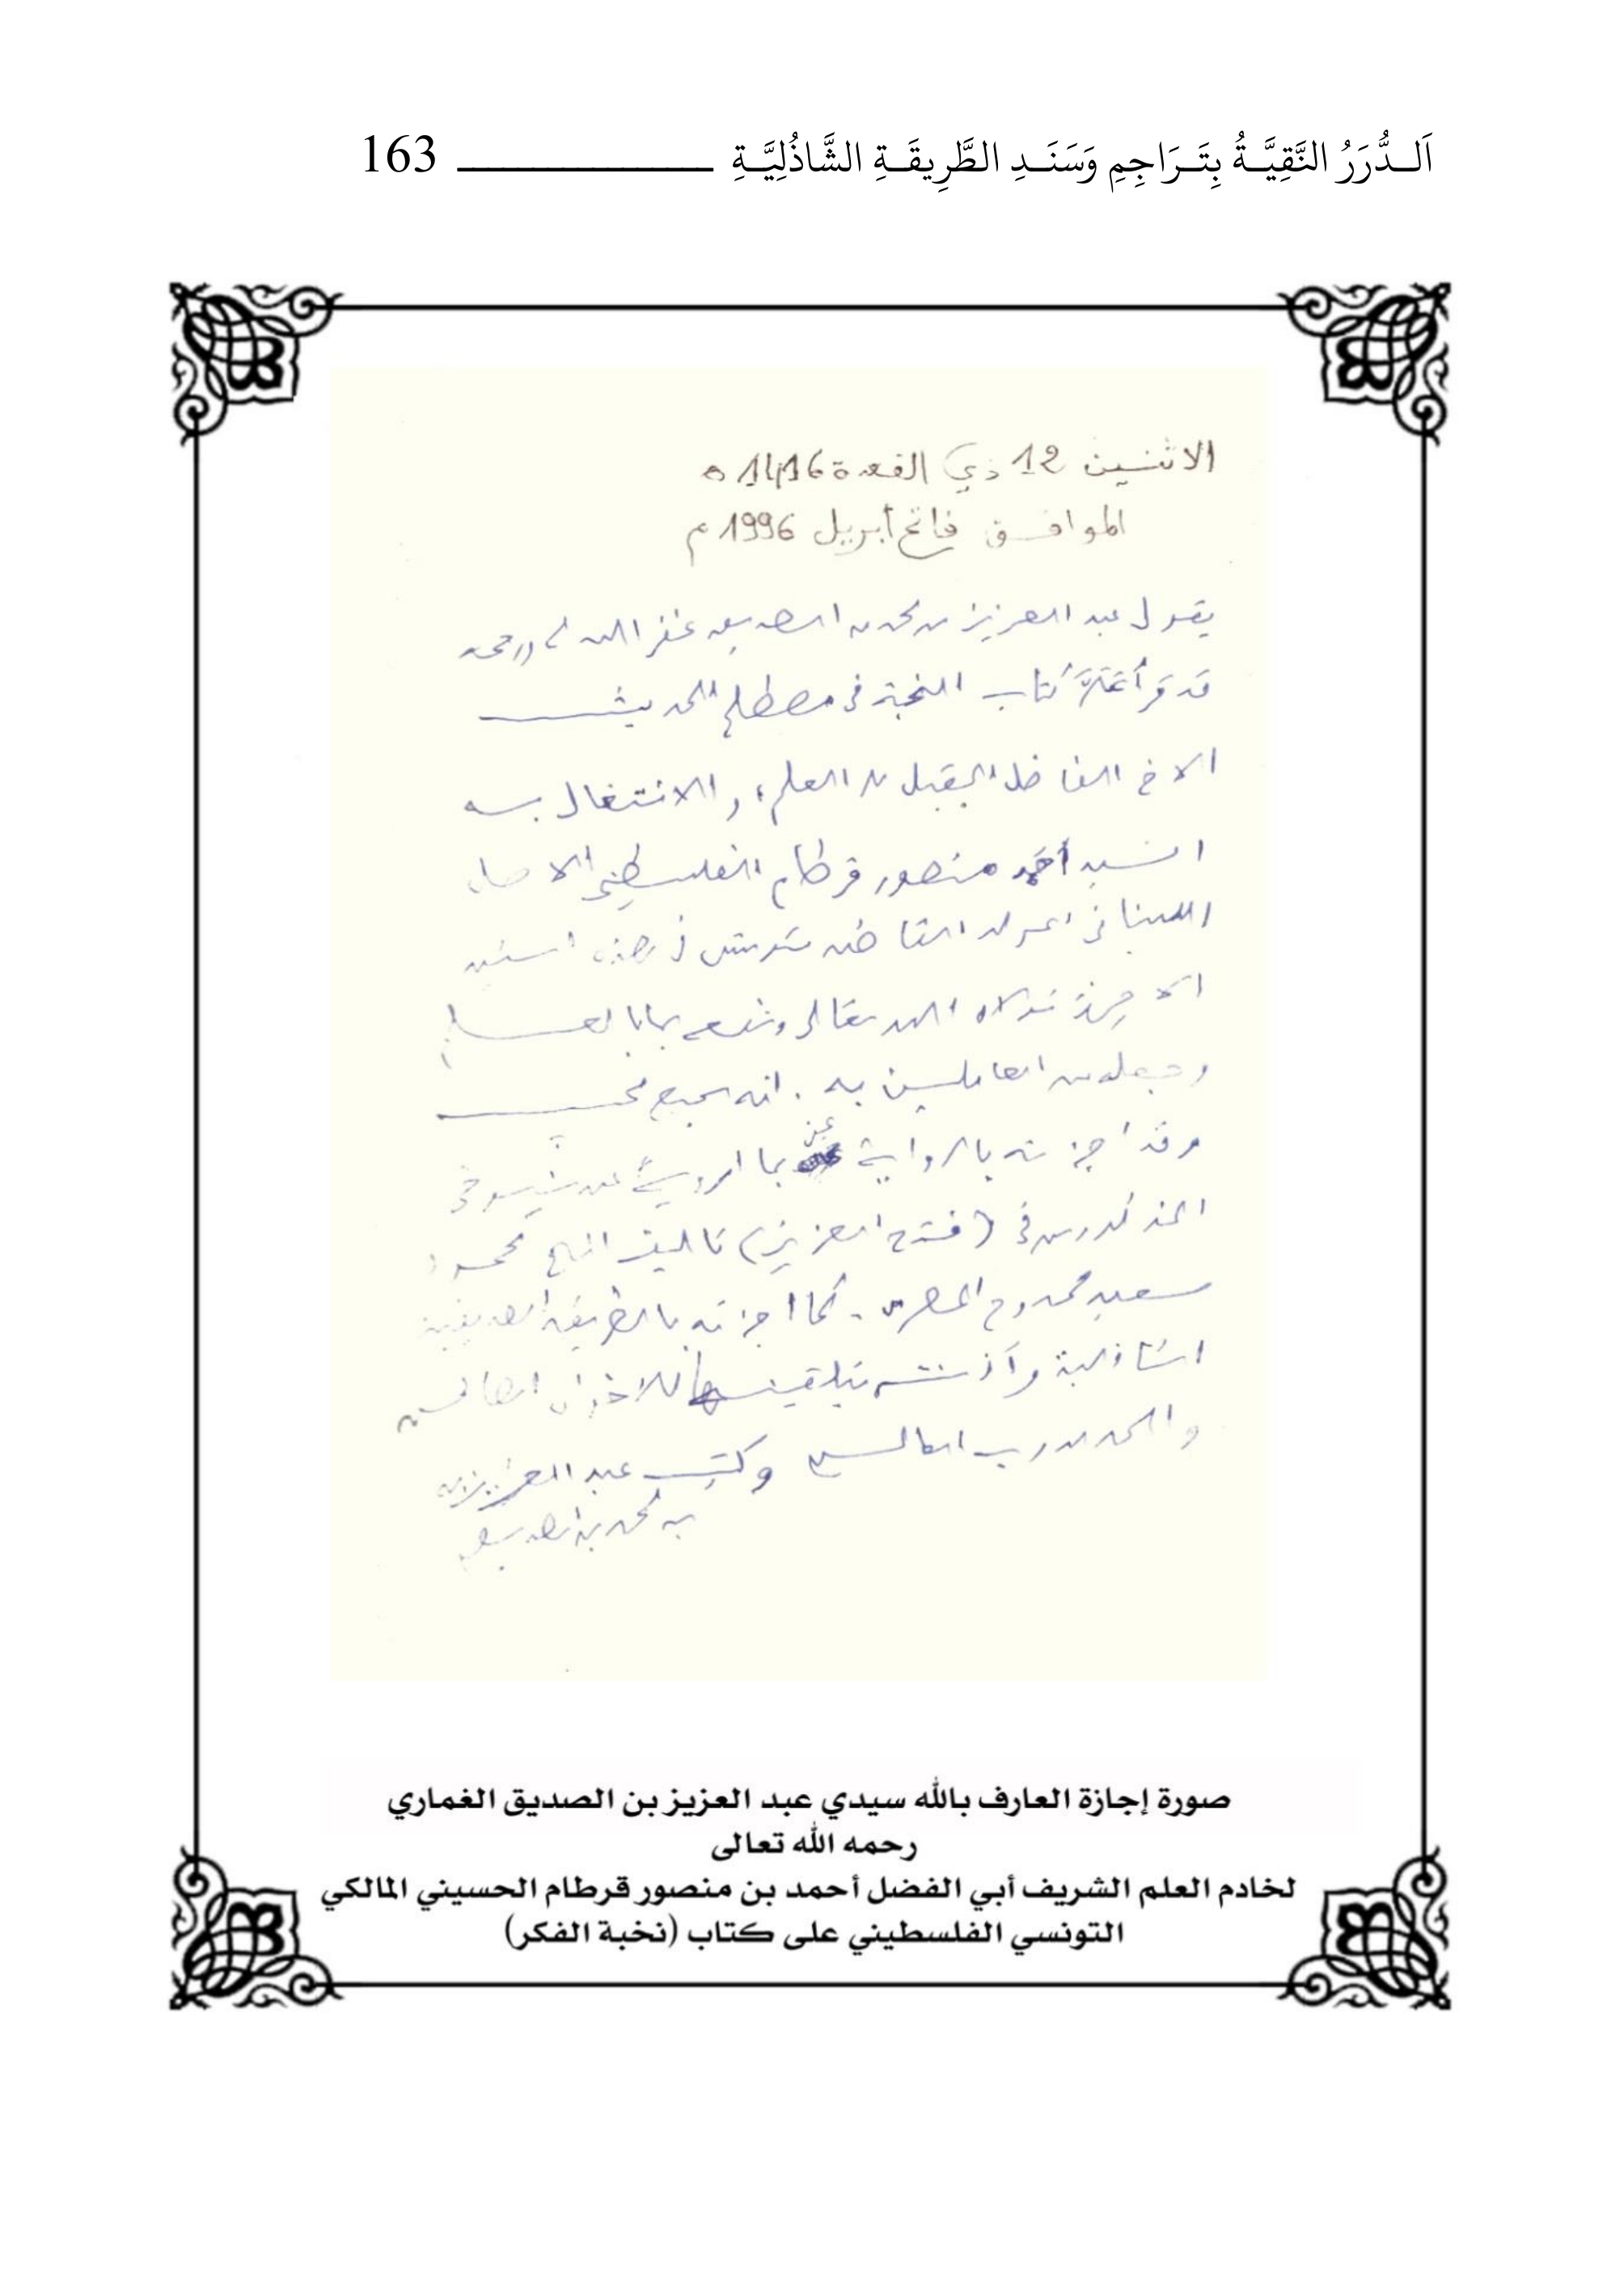 اَلــدُّرَرُ النَّقِيَّــةُ بِتَــرَاجِمِ وَسَنَــدِ الطَّرِيقَــةِ الشَّاذُلِيَّــةِ ـــــــــــــــــــ 163
الاثنين 12 ذي القعدة 1416 ه
الموافق فاتح أبريل 1996 م
يقول عبد العزيز بن محمد بن الصديق غفر الله له ورحمه
قد قرأ عَلَيَّ كتاب النخبة في مصطلح الحديث
الاخ الفاضل المقبل على العلم، والاشتغال به
السيد أحمد منصور قرطام الفلسطيني الاصل
اللبناني المولد القاطن بتونس في هذه السنين
الاخيرة تولاه الله تعالى ونفعه بالعلم
وجعله من العاملين به. انه سميع مجيب
وقد اجزته بالرواية عني بما ارويه عن شيوخي
المذكورين في (فتح العزيز) تاليف الشيخ محمود
سعيد ممدوح المصري. كما اجزته بالطريقة الصديقية
الشاذلية وأذنته بتلقينها للاخوان الطالبين
والحمد لله رب العالمين وكتب عبد العزيز
بن محمد بن الصديق
صورة إجازة العارف بالله سيدي عبد العزيز بن الصديق الغماري
رحمه الله تعالى
لخادم العلم الشريف أبي الفضل أحمد بن منصور قرطام الحسيني المالكي
التونسي الفلسطيني على كتاب (نخبة الفكر)